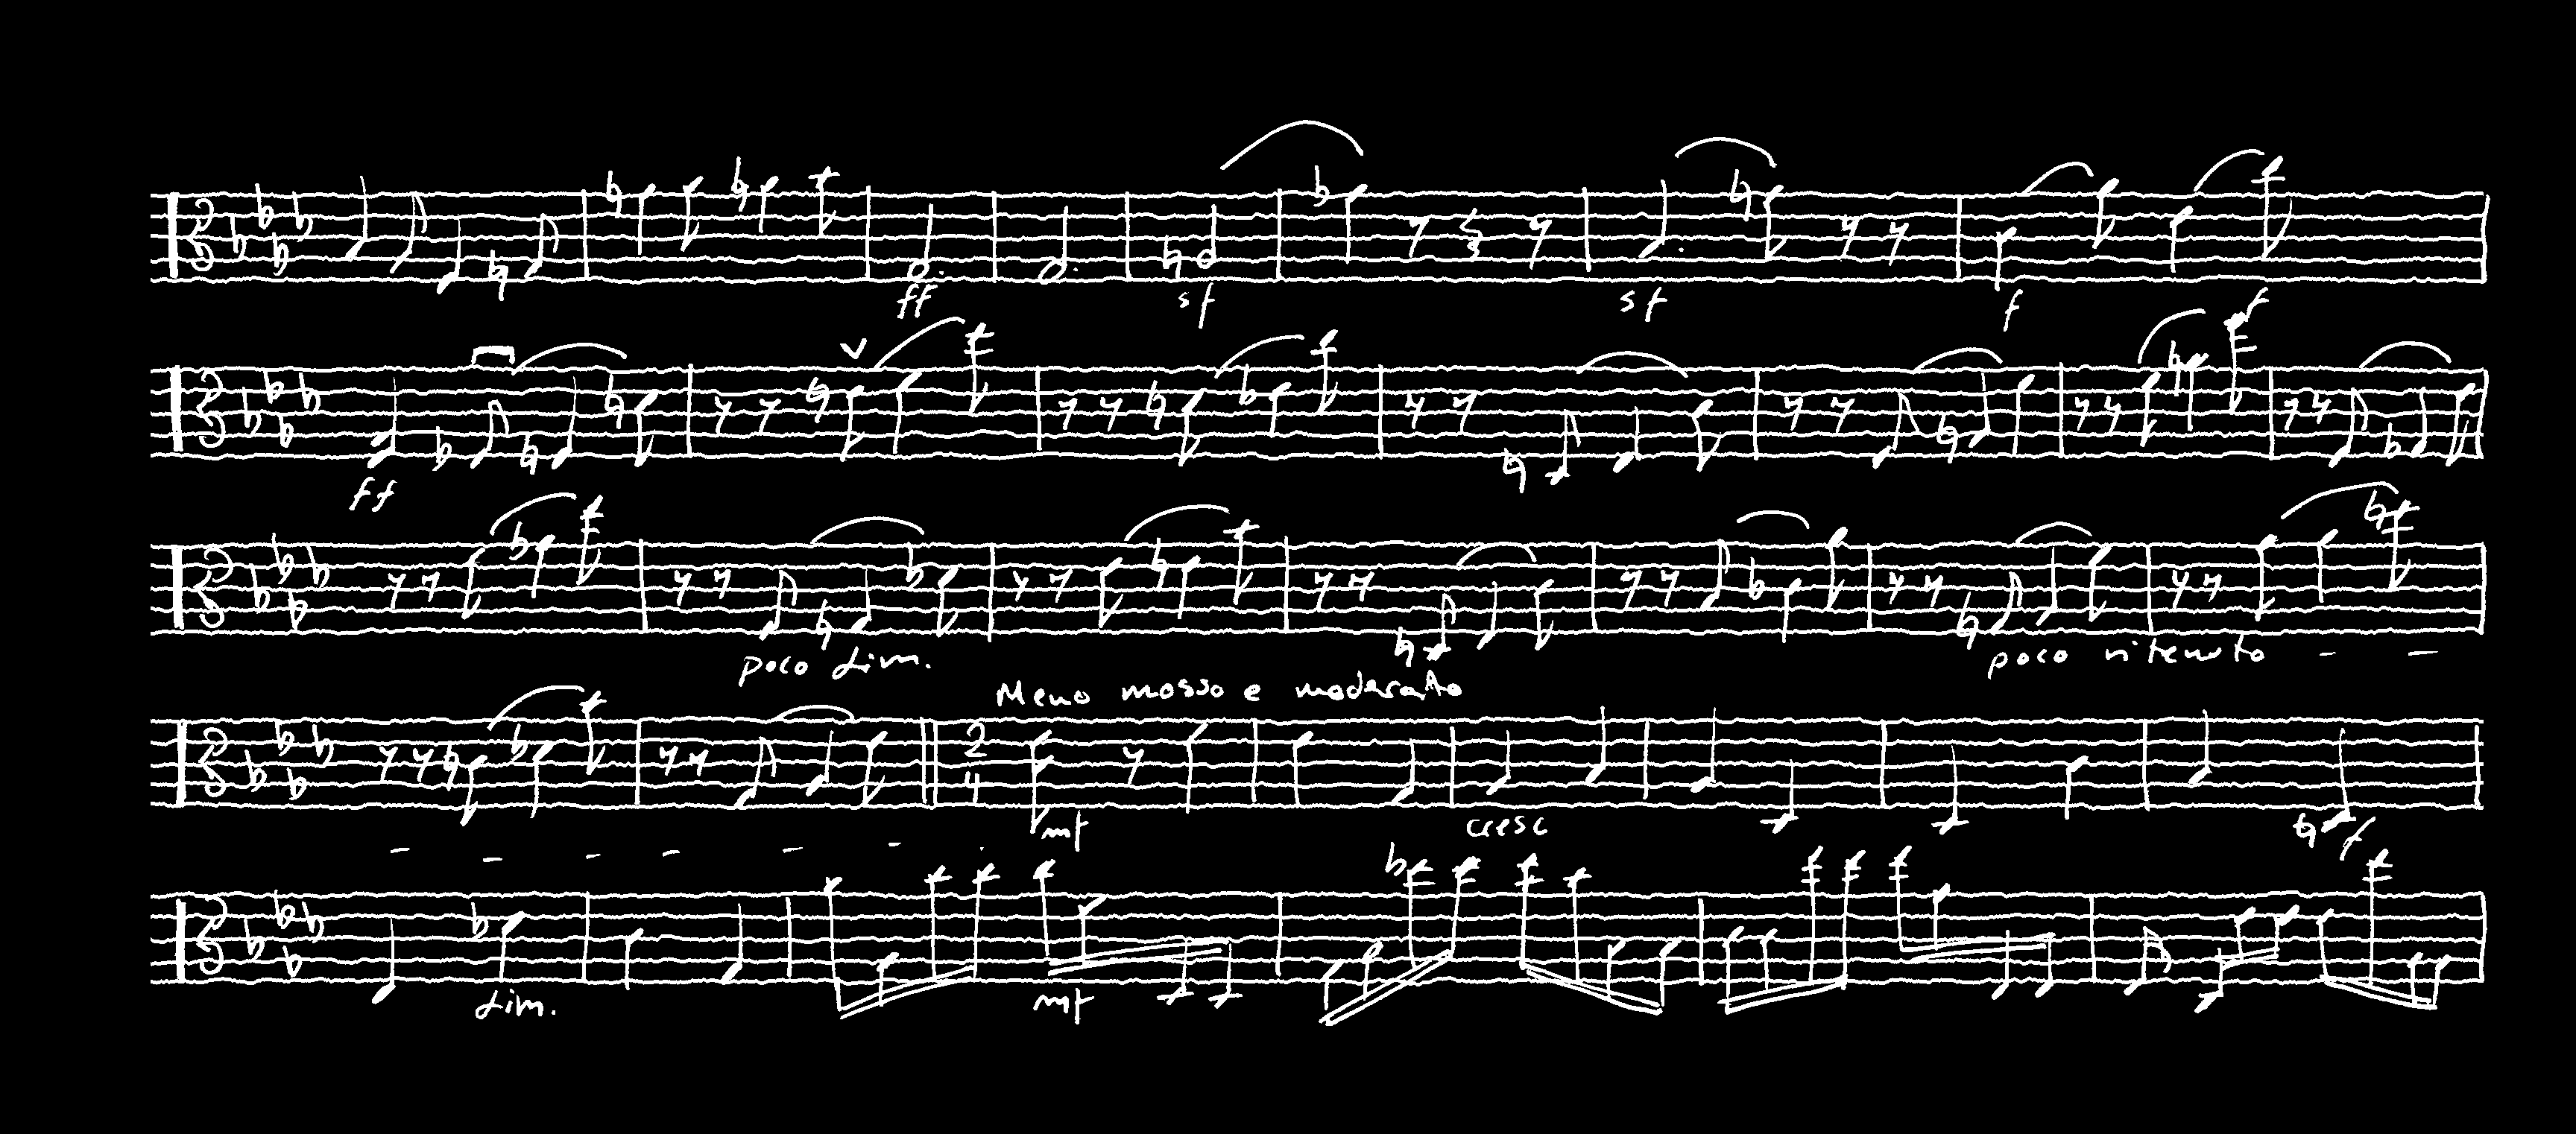 ff sf sf f f
ff
poco dim. poco ritenuto - -
Meno mosso e moderato
- - - - - - -
2
4
mf cresc f
dim. mf